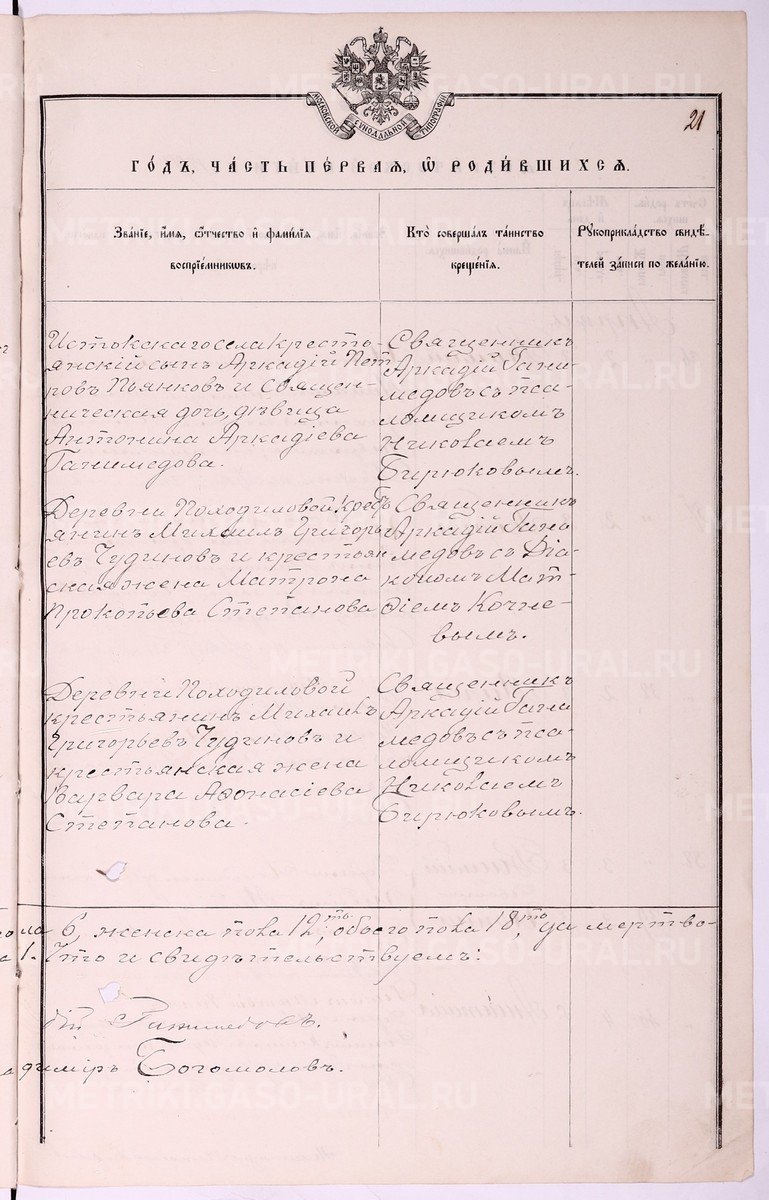 МОСКОВСКОЙ СѴНОДАЛЬНОЙ ТИПОГРАФІИ
21
ГО́ДЪ, ЧА́СТЬ ПЕ́РВАЯ, Ѡ҆ РОДИ́ВШИХСЯ.
Зва́нїе, и҆́мя, ѻ҆́тчество и҆ фами́лїѧ
воспрїе́мникѡвъ.
Кто̀ соверша́лъ та́инство
креще́нїѧ.
Рꙋкоприкла́дство свидѣ́-
телей за́писи по жела́нїю.
Истокскаго села кресто-
янскій сынъ Аркадій Пет
ровъ Пьянковъ и Священ-
ническая дочь, дѣвица
Антонина Аркадіева
Ганимедова.
Священникъ
Аркадій Гани-
медовъ съ пса-
ломщикомъ
Николаемъ
Бирюковымъ.
Деревни Походиловой крест
янинъ Михаилъ Григорь
евъ Чудиновъ и крестьян
ская жена Матрона
Прокопьева Степанова
Священникъ
Аркадій Гани
медовъ съ Діа-
кономъ Мат-
ѳіемъ Кочне-
вымъ.
Деревни Походиловой
крестьянинъ Михаилъ
Григорьевъ Чудиновъ и
крестьянская жена
Варвара Аѳонасіева
Степанова.
Священникъ
Аркадій Гани
медовъ съ пса-
ломщикомъ
Николаемъ
Бирюковымъ.
пола 6, женска пола 12ть, обоего пола 18ть, да мертво-
1. Что и свидѣтельствуемъ:
дій Ганимедовъ.
адиміръ Богомоловъ.
METRIKI.GASO-URAL.RU